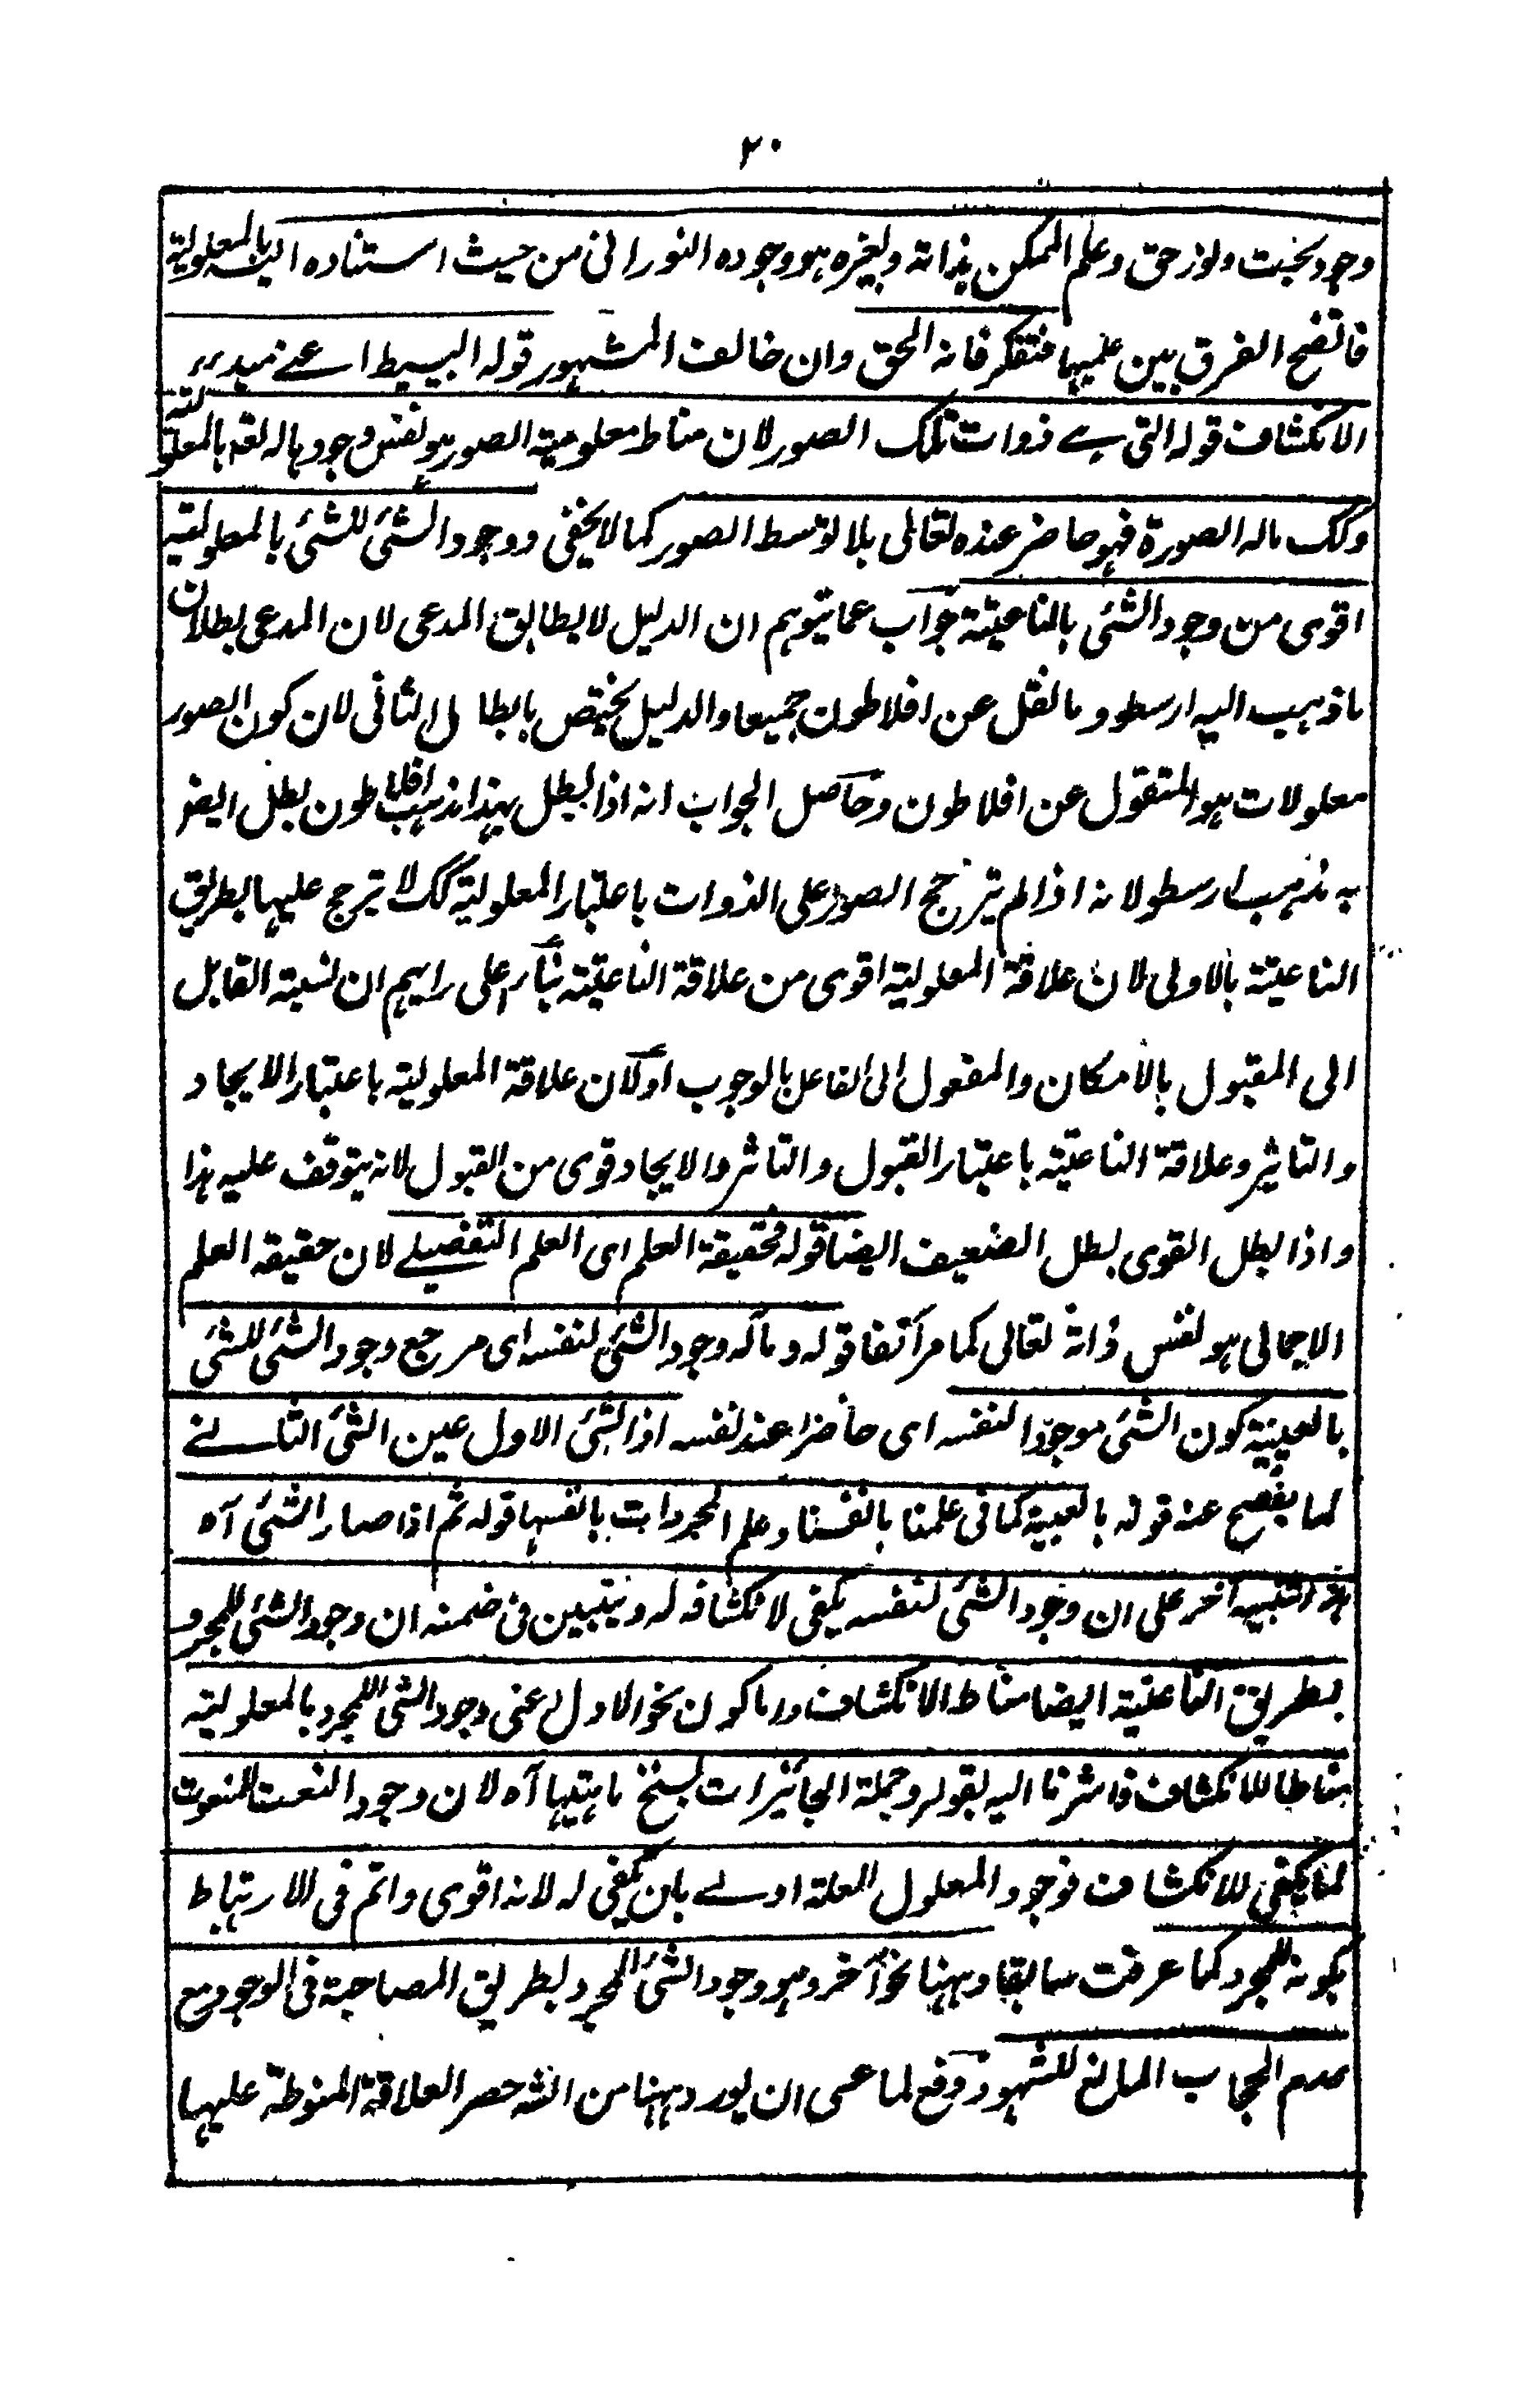 ٢٠
وجود بحت ونور حق وعلم الممكن بذاته ولغيره هو وجوده النوراني من حيث استناده اليه بالمعلولية
فاتضح الفرق بين علميهما فتفكر فانه الحق وان خالف المشهور قوله البسيط اعني مبدء
الانكشاف قوله التي هي ذوات تلك الصور لان مناط معلومية الصور هو نفس وجودها له تعه بالمعلولية
وكك ماله الصورة فهو حاضر عنده تعالى بلا توسط الصور كما لا يخفى ووجود الشئ للشئ بالمعلولية
اقوى من وجود الشئ بالناعتية جواب عما يتوهم ان الدليل لا يطابق المدعى لان المدعى بطلان
ما ذهب اليه ارسطو وما نقل عن افلاطون جميعا والدليل يختص بابطال الثاني لان كون الصور
معلولات هو المنقول عن افلاطون وحاصل الجواب انه اذا بطل بهذا مذهب افلاطون بطل ايضر
به مذهب ارسطو لانه اذا لم يترجح الصور على الذوات باعتبار المعلولية كك لا يترجح عليها بطريق
الناعتية بالاولى لان علاقة المعلولية اقوى من علاقة الناعتية بناء على رايهم ان نسبة القابل
الى المقبول بالامكان والمفعول الى الفاعل بالوجوب او لان علاقة المعلولية باعتبار الايجاد
والتاثير وعلاقة الناعتية باعتبار القبول والتاثر والايجاد قوى من القبول لانه يتوقف عليه هذا
واذا بطل القوى بطل الضعيف ايضا قوله فحقيقة العلم اى العلم التفصيلي لان حقيقة العلم
الاجمالي هو نفس ذاته تعالى كما مر آنفا قوله ومآله وجود الشئ لنفسه اى مرجع وجود الشئ للشئ
بالعينية كون الشئ موجودا لنفسه اى حاضرا عند نفسه اذ الشئ الاول عين الشئ الثاني
كما يفصح عنه قوله بالعينية كما في علمنا بانفسنا وعلم المجردات بانفسها قوله ثم اذا صار الشئ آه
هذا تنبيه آخر على ان وجود الشئ لنفسه يكفي لانكشافه له ويتبين في ضمنه ان وجود الشئ للمجرد
بطريق الناعتية ايضا مناط الانكشاف واما كون نحو الاول اعني وجود الشئ للمجرد بالمعلولية
مناطا للانكشاف فاشرنا اليه بقوله وجملة الجائزات بسنخ ماهيتها آه لان وجود النعت للمنعوت
لما يكفي للانكشاف فوجود المعلول للعلة اولى بان يكفي له لانه اقوى واتم في الارتباط
بكونه للمجرد كما عرفت سابقا وههنا نحو آخر وهو وجود الشئ للمجرد بطريق المصاحبة في الوجود مع
عدم الحجاب المانع للشهود دفع لما عسى ان يورد ههنا من انه حصر العلاقة المنوطة عليها